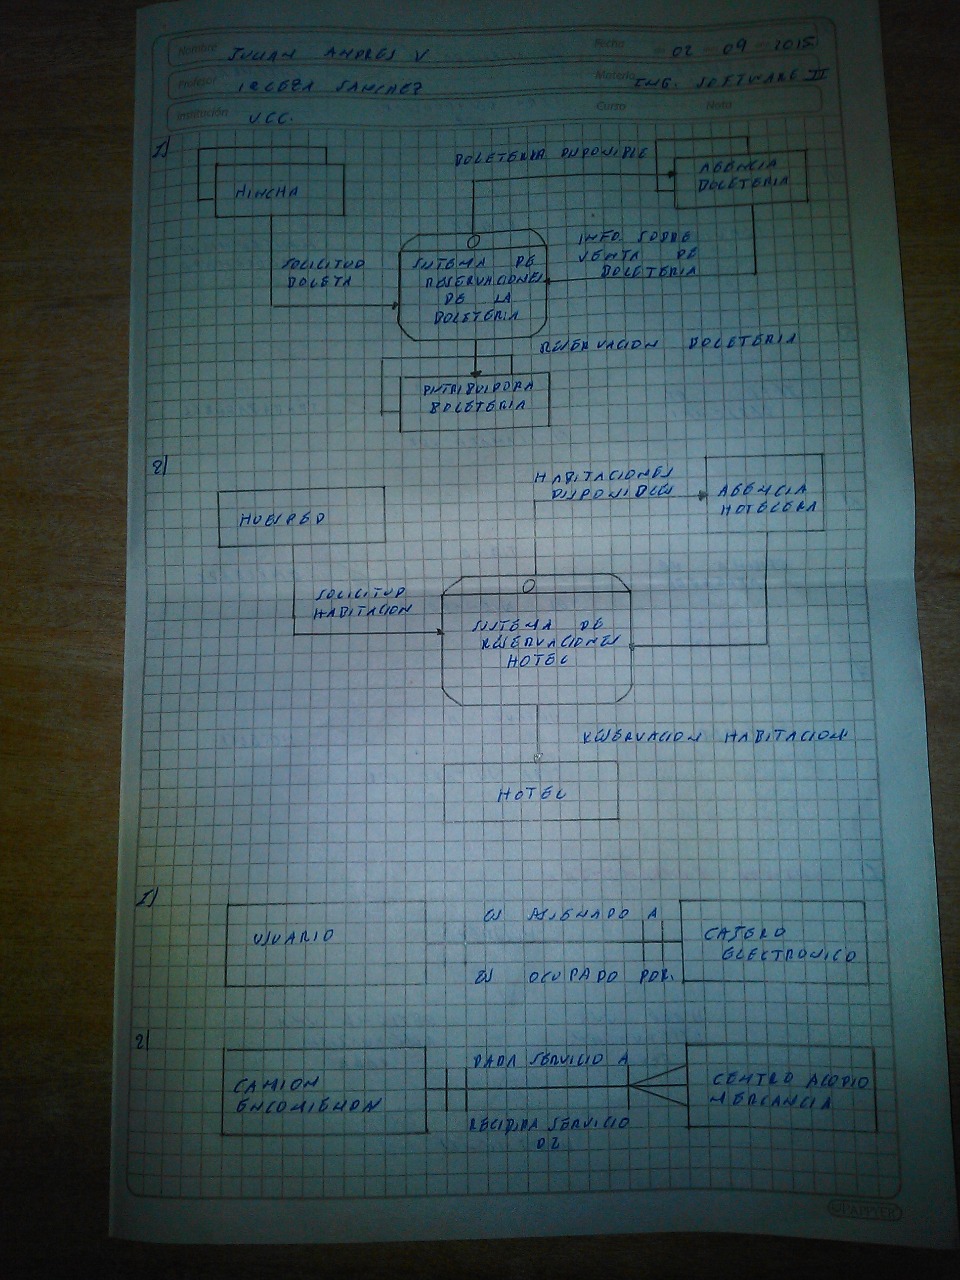 Nombre JULIAN ANDRES V Fecha 02 - 09 - 2015
Profesor SANCHEZ Materia ING. SOFTWARE II
Institución UCC. Curso Nota
1)
HINCHA
BOLETERIA DISPONIBLE
AGENCIA
BOLETERIA
SOLICITUD
BOLETA
SISTEMA DE
RESERVACIONES
DE LA
BOLETERIA
0
INFO. SOBRE
VENTA DE
BOLETERIA
RESERVACION BOLETERIA
DISTRIBUIDORA
BOLETERIA
2)
HUESPED
HABITACIONES
DISPONIBLES
AGENCIA
HOTELERA
SOLICITUD
HABITACION
0
SISTEMA DE
RESERVACIONES
HOTEL
RESERVACION HABITACION
HOTEL
1)
USUARIO
ES ASIGNADO A
ES OCUPADO POR.
CAJERO
ELECTRONICO
2)
CAMION
ENCOMIENDA
DADA SERVICIO A
RECIBIRA SERVICIO
DE
CENTRO ACOPIO
MERCANCIA
PAPYER